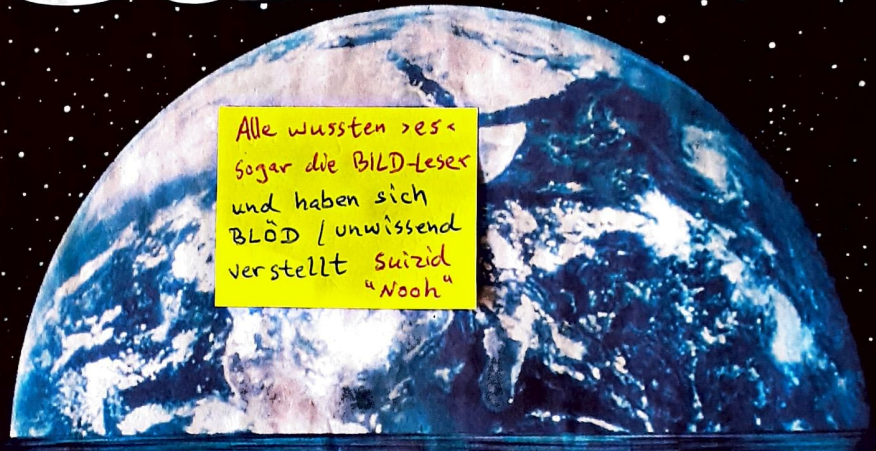 Alle wussten >es<
sogar die BILD-Leser
und haben sich
BLÖD / unwissend
verstellt suizid
"Nooh"